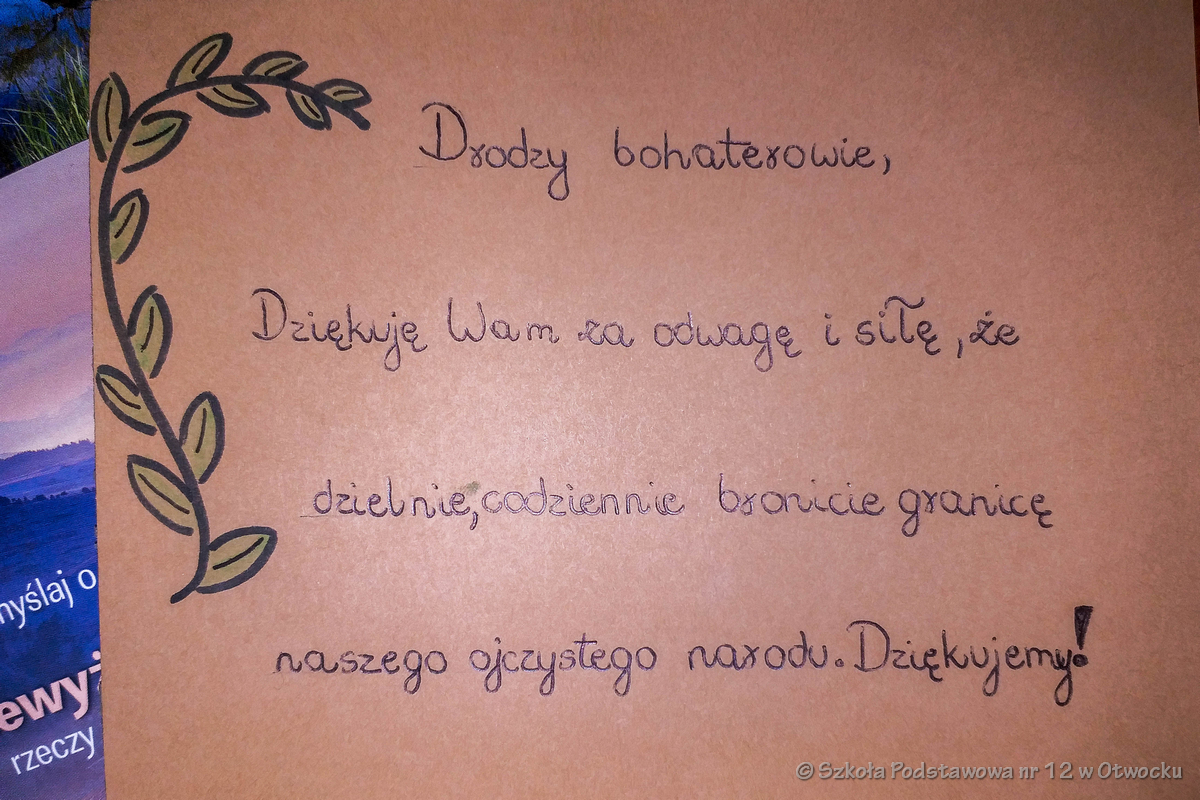 Drodzy bohaterowie,
Dziękuję Wam za odwagę i siłę, że
dzielnie, codziennie bronicie granicę
naszego ojczystego narodu. Dziękujemy!
myślaj o
ewyż
rzeczy
© Szkoła Podstawowa nr 12 w Otwocku